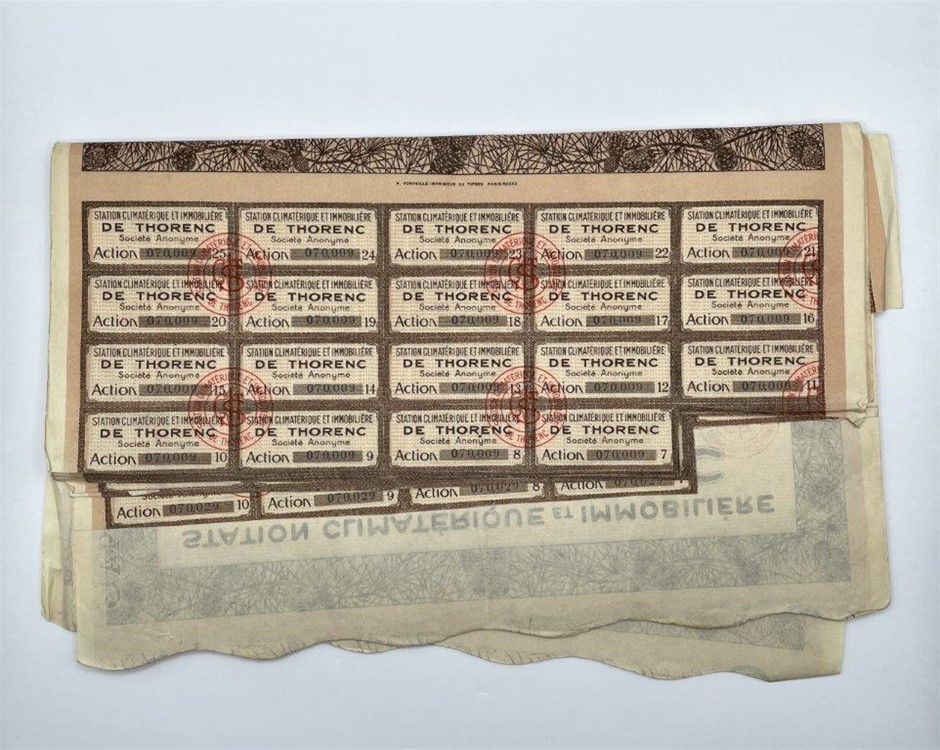 P. FORVEILLE IMPRIMEUR DE TITRES PARIS-RODEZ
STATION CLIMATÉRIQUE ET IMMOBILIÈRE
DE THORENC
Société Anonyme
Action 070,009 25
STATION CLIMATÉRIQUE ET IMMOBILIÈRE
DE THORENC
Société Anonyme
Action 070,009 24
STATION CLIMATÉRIQUE ET IMMOBILIÈRE
DE THORENC
Société Anonyme
Action 070,009 23
STATION CLIMATÉRIQUE ET IMMOBILIÈRE
DE THORENC
Société Anonyme
Action 070,009 22
STATION CLIMATÉRIQUE ET IMMOBILIÈRE
DE THORENC
Société Anonyme
Action 070,009 21
STATION CLIMATÉRIQUE ET IMMOBILIÈRE
DE THORENC
Société Anonyme
Action 070,009 20
STATION CLIMATÉRIQUE ET IMMOBILIÈRE
DE THORENC
Société Anonyme
Action 070,009 19
STATION CLIMATÉRIQUE ET IMMOBILIÈRE
DE THORENC
Société Anonyme
Action 070,009 18
STATION CLIMATÉRIQUE ET IMMOBILIÈRE
DE THORENC
Société Anonyme
Action 070,009 17
STATION CLIMATÉRIQUE ET IMMOBILIÈRE
DE THORENC
Société Anonyme
Action 070,009 16
STATION CLIMATÉRIQUE ET IMMOBILIÈRE
DE THORENC
Société Anonyme
Action 070,009 15
STATION CLIMATÉRIQUE ET IMMOBILIÈRE
DE THORENC
Société Anonyme
Action 070,009 14
STATION CLIMATÉRIQUE ET IMMOBILIÈRE
DE THORENC
Société Anonyme
Action 070,009 13
STATION CLIMATÉRIQUE ET IMMOBILIÈRE
DE THORENC
Société Anonyme
Action 070,009 12
STATION CLIMATÉRIQUE ET IMMOBILIÈRE
DE THORENC
Société Anonyme
Action 070,009 11
STATION CLIMATÉRIQUE ET IMMOBILIÈRE
DE THORENC
Société Anonyme
Action 070,009 10
STATION CLIMATÉRIQUE ET IMMOBILIÈRE
DE THORENC
Société Anonyme
Action 070,009 9
STATION CLIMATÉRIQUE ET IMMOBILIÈRE
DE THORENC
Société Anonyme
Action 070,009 8
STATION CLIMATÉRIQUE ET IMMOBILIÈRE
DE THORENC
Société Anonyme
Action 070,009 7
Société Anonyme
Action 070,029 10
Action 070,029 9
Action 070,029 8
Action 070,029
STATION CLIMATÉRIQUE ET IMMOBILIÈRE